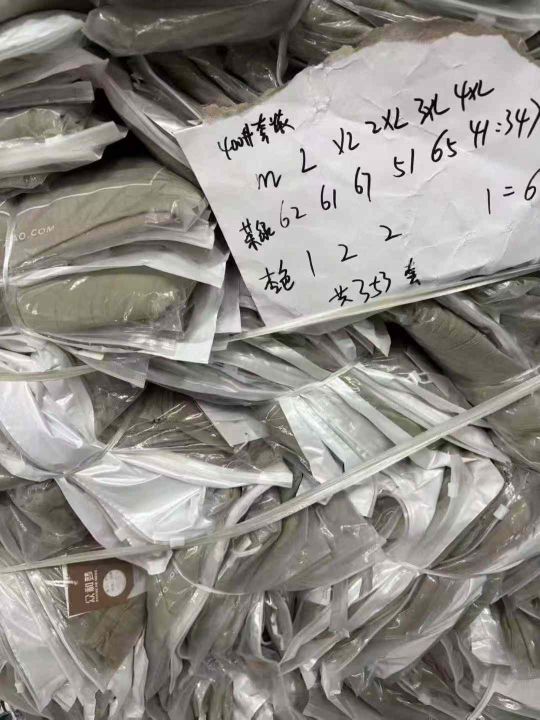 400# 套装
m L XL 2XL 3XL 4XL
菜绿 62 61 67 51 65 41 = 347
杏色 1 2 2 1 = 6
共 353 套
AO.COM
众和梦